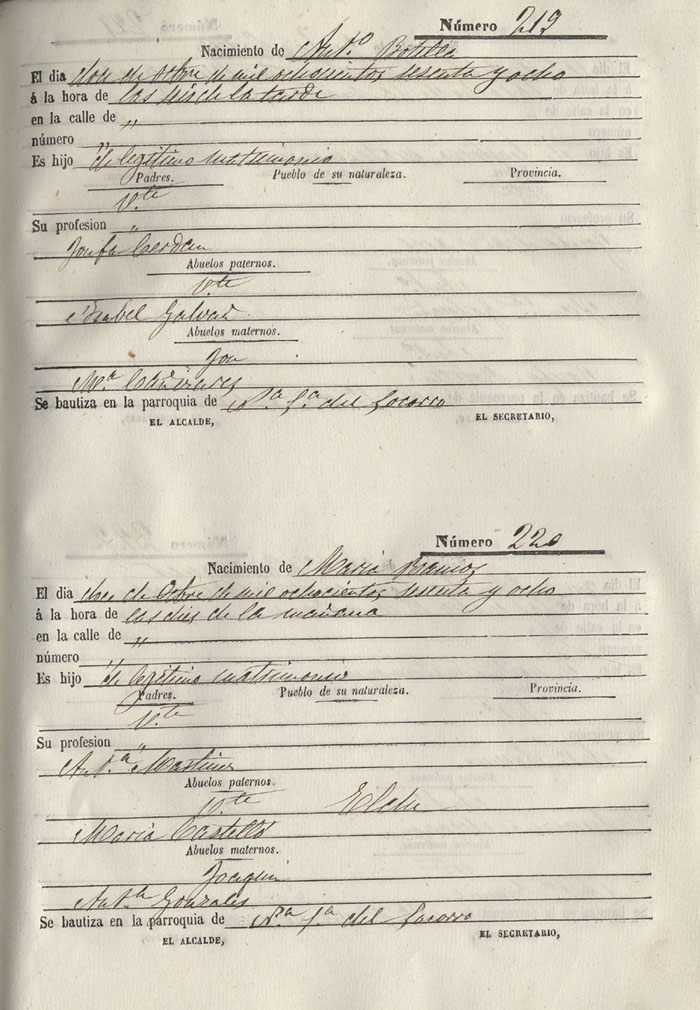 Número 219
Nacimiento de Ant.º Botella
El dia dos de Otbre de mil ochocientos sesenta y ocho
á la hora de las seis de la tarde
en la calle de "
número "
Es hijo de legitimo matrimonio
Padres. Pueblo de su naturaleza. Provincia.
V.te
Su profesion "
Josefa Cerdan
Abuelos paternos.
V.te
Isabel Galvañ
Abuelos maternos.
M.ª Cañizares
Se bautiza en la parroquia de N.ª S.ª del Socorro
EL ALCALDE, EL SECRETARIO,
Número 220
Nacimiento de Maria Ramos
El dia de Octbre de mil ochocientos sesenta y ocho
á la hora de las dies de la mañana
en la calle de "
número "
Es hijo de legitimo matrimonio
Padres. Pueblo de su naturaleza. Provincia.
V.te
Su profesion "
Ant.ª Martinez
Abuelos paternos.
V.te Elche
Maria Castelló
Abuelos maternos.
Joaquin
Ant.ª Gonzales
Se bautiza en la parroquia de N.ª S.ª del Socorro
EL ALCALDE, EL SECRETARIO,